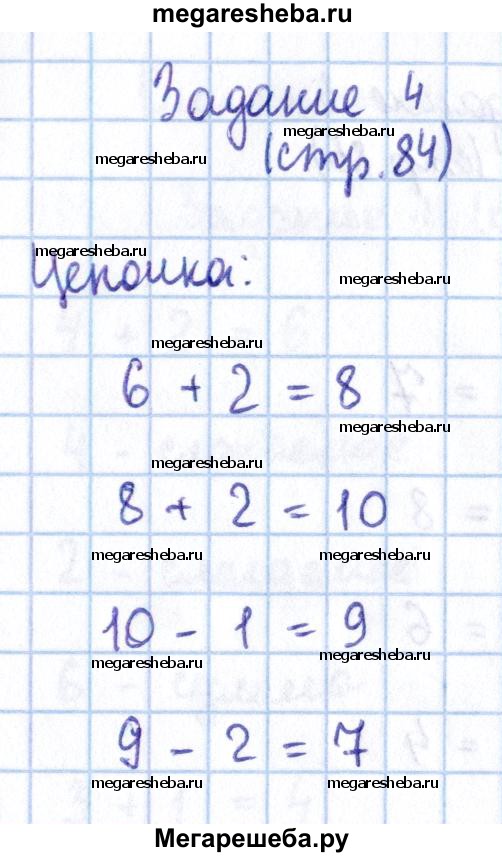 megaresheba.ru
Задание 4
megaresheba.ru
megaresheba.ru
(стр. 84)
megaresheba.ru
Цепочка:
megaresheba.ru
megaresheba.ru
6 + 2 = 8
megaresheba.ru
megaresheba.ru
8 + 2 = 10
megaresheba.ru megaresheba.ru
10 - 1 = 9
megaresheba.ru megaresheba.ru
9 - 2 = 7
megaresheba.ru megaresheba.ru
Мегарешеба.ру